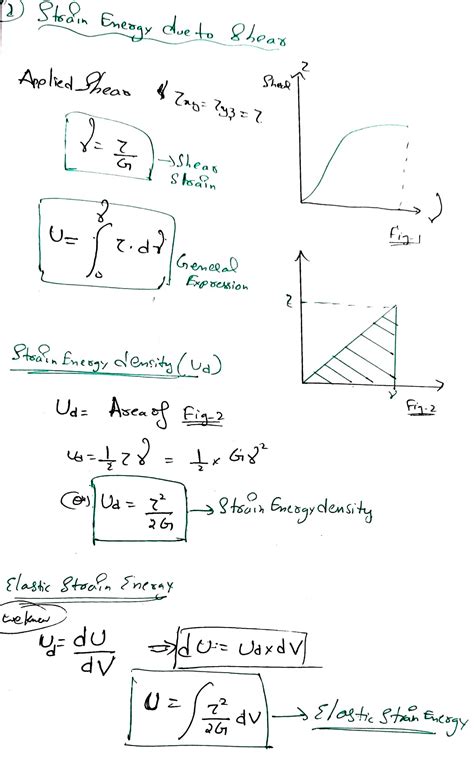 2) Strain Energy due to Shear
Applied Shear τxy = τyz = τ
γ = τ/G → Shear Strain
U = ∫₀^γ τ.dγ
General Expression
Shear τ
Fig-1
τ
γ
Fig-2
Strain Energy density (Ud)
Ud = Area of Fig-2
ud = 1/2 τ γ = 1/2 × Gγ²
(or) Ud = τ²/2G → Strain Energy density
Elastic Strain Energy
we know
Ud = dU/dV ⇒ dU = Ud x dV
U = ∫ τ²/2G dV → Elastic Strain Energy